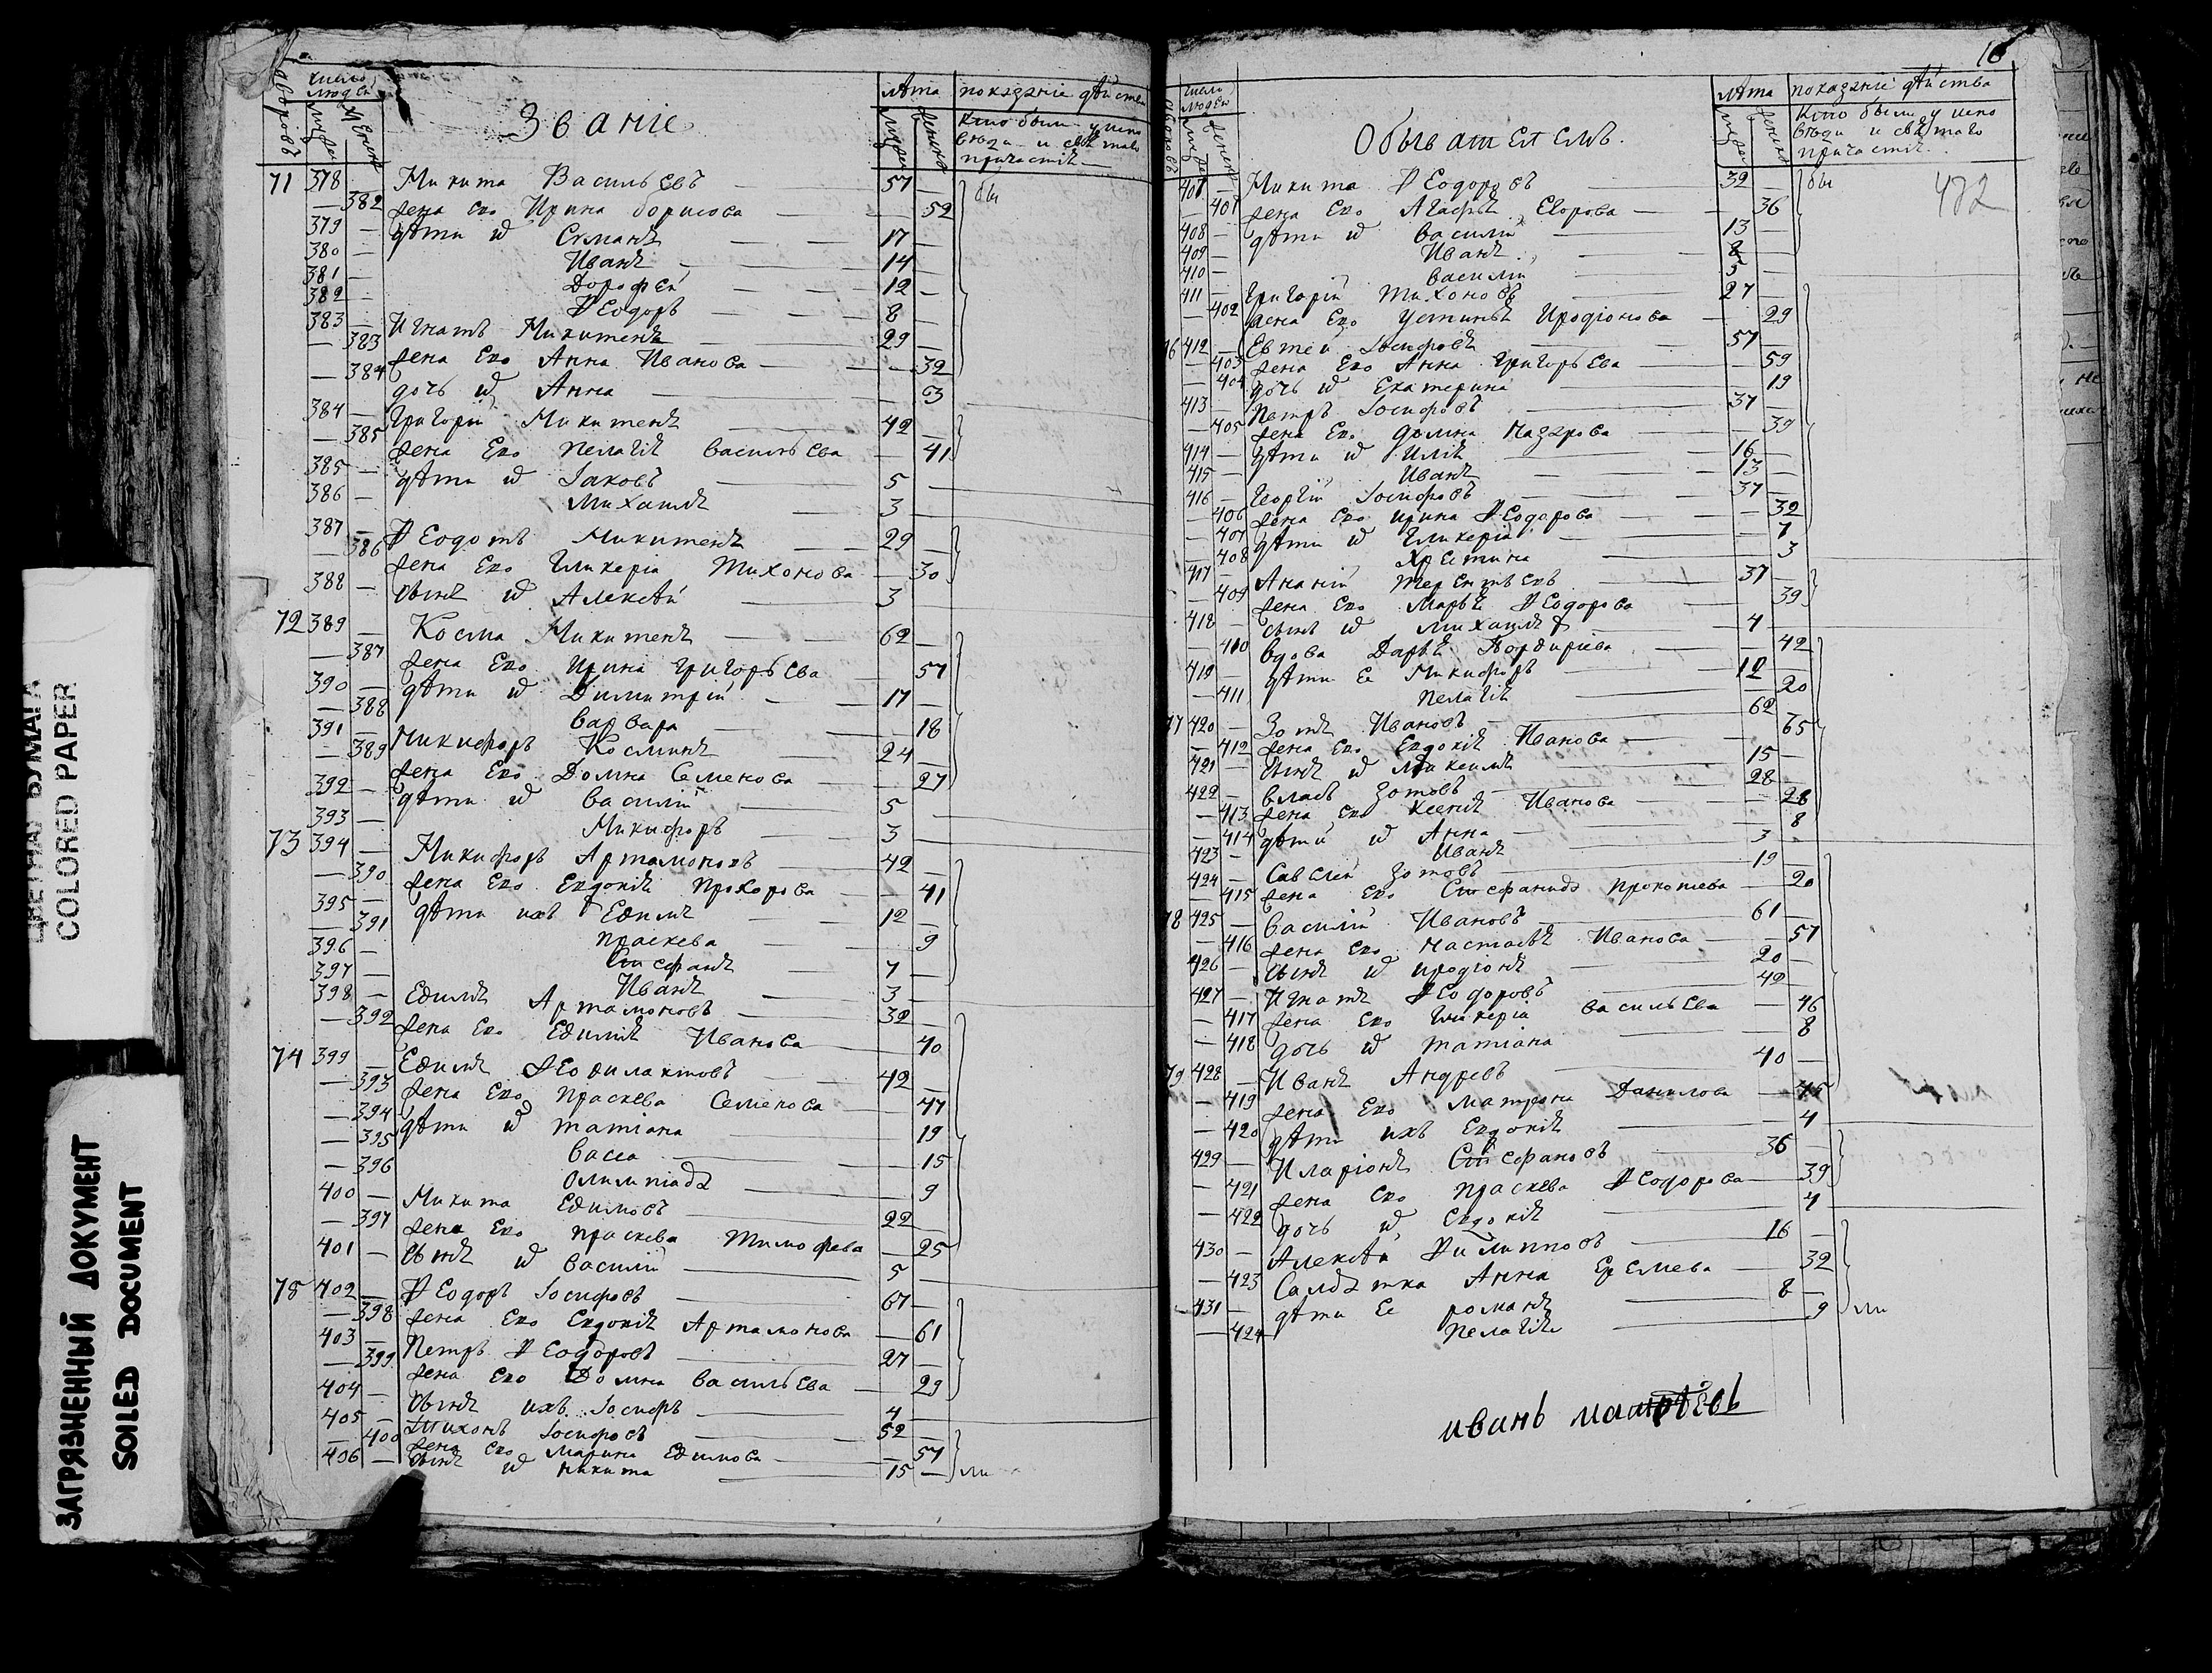 ЦВЕТНАЯ БУМАГА
COLORED PAPER
ЗАГРЯЗНЕННЫЙ ДОКУМЕНТ
SOILED DOCUMENT
дворовъ число людей Званіе лѣта показаніе дѣйства
мужеск женска мужеск женска Кто былъ у испо
вѣди и свѧтаго
причастіѧ
71 378 — Микита Васильевъ — 57 — бы
— 382 жена его Ирина борисова — — 52
379 — дѣти их Симанъ — — 17 —
380 — Иванъ — — 14 —
381 — Дорофей — — 12 —
382 — Ѳеодоръ — — 8 —
383 — Игнатъ Микитенъ — 29 —
— 383 жена Его Анна Иванова — — 32
— 384 дочь их Анна — 3
384 — Григорій Микитенъ — 42 —
— 385 жена Его Пелагіѧ васильева — 41
385 — дѣти их Іаковъ — 5 —
386 — Михаилъ — 3 —
387 — Ѳеодотъ Микитенъ — 29 —
— 386 жена Его Гликеріа Тихонова — 30
388 — сынъ их Алексѣй — 3
72 389 — Косма Микитенъ — 62 —
— 387 жена Его Ирина григорьева — 57
390 — дѣти их Димитрій — 17 —
— 388 варвара — 18
391 — Микифоръ Косминъ — 24 —
— 389 жена Его Домна Семенова — 27
392 — дѣти их василій — 5 —
393 — Микифоръ — 3 —
73 394 — Микифоръ Артамоновъ 42 —
— 390 жена Его Евдокіѧ прохорова — 41
395 — дѣти ихъ Ефимъ — 12 —
— 391 праскева — 9
396 — Стефанъ — 7 —
397 — Иванъ — 3 —
398 — Ефимъ Артамоновъ — 32 —
— 392 жена Его Ефиміѧ Иванова — 40
74 399 — Ефимъ Ѳеофилактовъ — 42 —
— 393 жена Его праскева Семенова — 47
— 394 дѣти их татіана — 19
— 395 васса — 15
— 396 Олимпіада — 9
400 — Микита Ефимовъ — 22
— 397 жена Его праскева Тимофеева — 25
401 — сынъ их василій — 5 —
75 402 — Ѳеодоръ Іосифовъ — 67 —
— 398 жена Его Евдокіѧ Артамонова — 61
403 — Петръ Ѳеодоровъ — 27 —
— 399 жена Его Домна васильева — 29
404 — сынъ ихъ Іосифъ — 4 —
405 — Тихонъ Іосифовъ — 52 —
— 400 жена его марина Ефимова — 57
406 — сынъ их никита — 15 — ли
16
дворовъ число людей Обывателѣ лѣта показаніе дѣйства
мужеск женска мужеск женска Кто былъ у испо
вѣди и свѧтаго
причастіѧ
482
407 — Микита Ѳеодоровъ — 32 — бы
— 401 жена Его Агафіѧ Егорова — 36
408 — дѣти их василій — 13 —
409 — Иванъ — 8 —
410 — василій — 5 —
411 — Григорій Тихоновъ — 27 —
— 402 жена Его устиніѧ Иродіонова — 29
76 412 — Евтей Іосифовъ — 57 —
— 403 жена Его Анна григорьева — 59
— 404 дочь их Екатерина — 19
413 — Петръ Іосифовъ — 37 —
— 405 жена Его домна назарова — 39
414 — дѣти их Иліѧ — 16 —
415 — Иванъ — 13 —
416 — Георгій Іосифовъ — 37 —
— 406 жена Его ирина Ѳеодорова — 32
— 407 дѣти их Гликеріа — 7
— 408 Христина — 3
417 — Ананій Терентьевъ — 37 —
— 409 жена Его марьѧ Ѳеодорова — 39
418 — сынъ их михаилъ — 4 —
— 410 вдова Дарьѧ Порфиріева — 42
419 — дѣти Ее Микифоръ — 12 —
— 411 пелагіѧ — 20
77 420 — Зотъ Ивановъ — 62 —
— 412 жена Его Евдокіѧ Иванова — 65
421 — сынъ их Максимъ — 15 —
422 — власъ зотовъ — 28 —
— 413 жена Его Ксеніѧ Иванова — 28
— 414 дѣти их Анна — 8
423 — Иванъ — 3 —
424 — Савелій зотовъ — 19 —
— 415 жена Его Стефанида прокопиева — 20
78 425 — василій Ивановъ — 61 —
— 416 жена Его настасьѧ Иванова — 57
426 — сынъ их иродіонъ — 20 —
427 — Игнатъ Ѳеодоровъ — 42 —
— 417 жена Его Гликеріа васильева — 46
— 418 дочь их татіана — 8
79 428 — Иванъ Андревъ — 40 —
— 419 жена Его матрона Данилова — 45
— 420 дѣти ихъ Евдокіѧ — 4
429 — Иларіонъ Стефановъ — 36 —
— 421 жена Его праскева Ѳеодорова — 39
— 422 дочь их Евдокіѧ — 4
430 — Алексѣй Филипповъ — 16 —
— 423 Салдатка Анна Еремеева — 32
431 — дѣти Ее романъ — 8 —
— 424 пелагіѧ — 9 ли
иванъ матвѣевъ